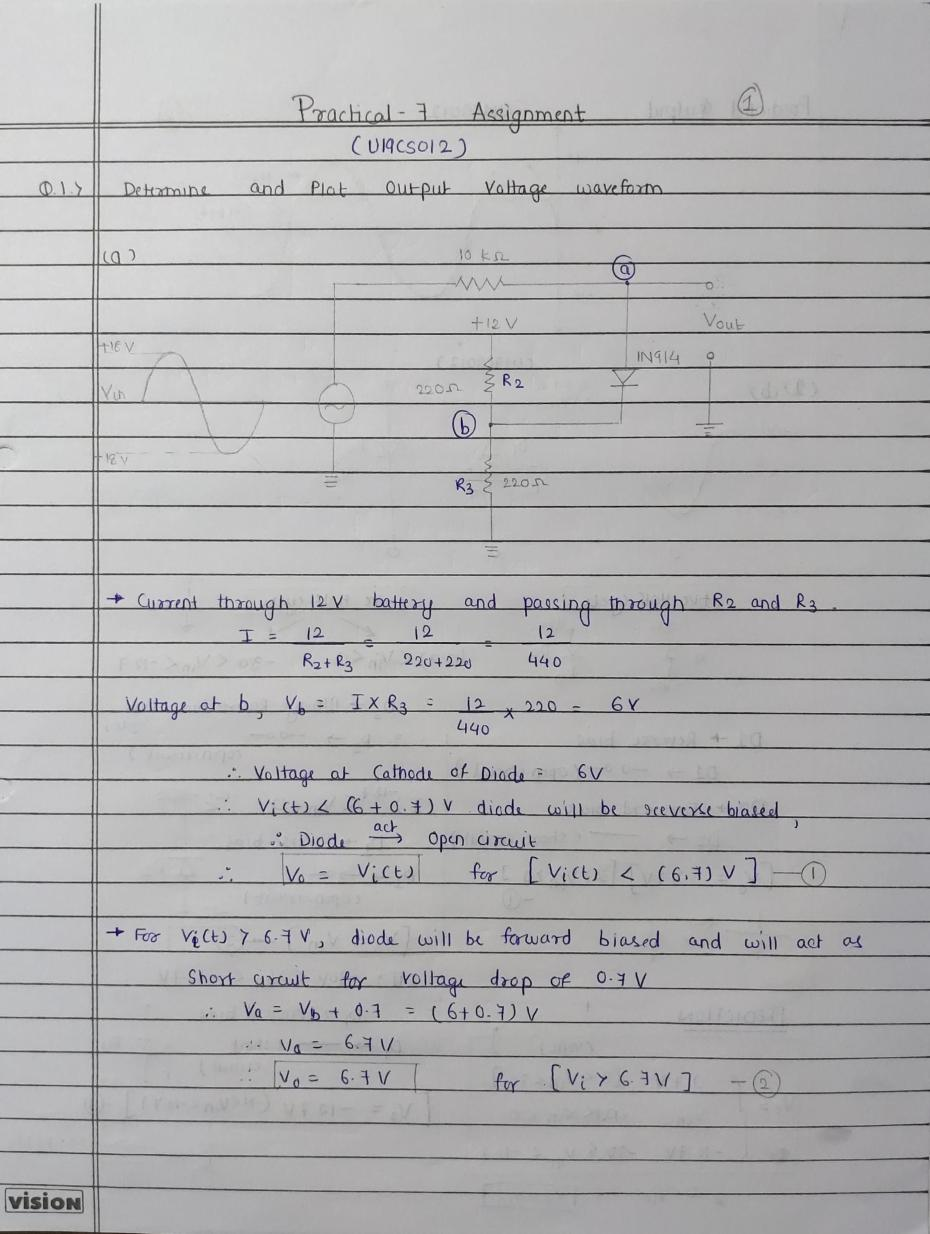 Practical - 7 Assignment
①
(U19CS012)
Q.1.> Determine and Plot Output Voltage waveform
(a)
10 kΩ
ⓐ
+12 V
Vout
+18 V
IN914
220Ω R2
Vin
ⓑ
-18 V
R3 220Ω
→ Current through 12 V battery and passing through R2 and R3.
I = 12 / R2+R3 = 12 / 220+220 = 12 / 440
Voltage at b, Vb = I X R3 = 12 / 440 x 220 = 6V
∴ Voltage at Cathode of Diode = 6V
∴ Vi(t) < (6 + 0.7) V diode will be reverse biased,
∴ Diode act→ Open circuit
∴ Vo = Vi(t) for [ Vi(t) < (6.7) V ] —①
→ For Vi(t) > 6.7 V, diode will be forward biased and will act as
Short circuit for voltage drop of 0.7 V
∴ Va = Vb + 0.7 = (6+0.7) V
∴ Va = 6.7 V
∴ Vo = 6.7 V for [ Vi > 6.7V ] —②
vision